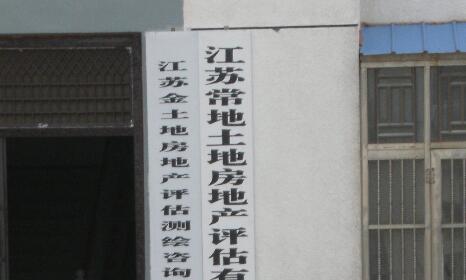 江苏常地土地房地产评估有
江苏金土地房地产评估测绘咨询